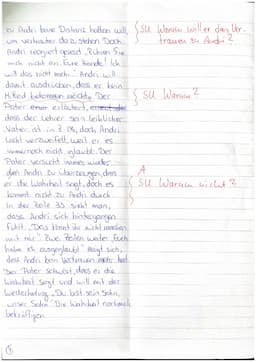 zu Andri keine Distanz halten will,
um vertrauter da zu stehen. Doch
Andri reagiert gereizt „Rühren Sie
mich nicht an. Eure Hände! Ich
will das nicht mehr." Andri will
damit ausdrücken, dass er kein
Mitleid bekommen möchte. Der
Pater erläutert,
dass der Lehrer sein leiblicher
Vater ist in Z. 26, doch Andri
lacht verzweifelt, weil er es
immernoch nicht glaubt. Der
Pater versucht immer wieder
den Andri zu überzeugen, dass
er die Wahrheit sagt, doch es
kommt nicht zu Andri durch.
In der Zeile 33 sieht man,
dass Andri sich hintergangen
fühlt. „Das könnt ihr nicht machen
mit mir". Zwei Zeilen weiter „Euch
habe ich ausgeglaubt" zeigt sich,
dass Andri kein Vertrauen mehr hat.
Der Pater schwört, dass er die
Wahrheit sagt und will mit der
Wiederholung „Du bist sein Sohn,
unser Sohn". Die Wahrheit nochmal
bekräftigen.
SU Warum will er das Ver-
trauen zu Andri?
SU Warum?
A
SU Warum nicht?